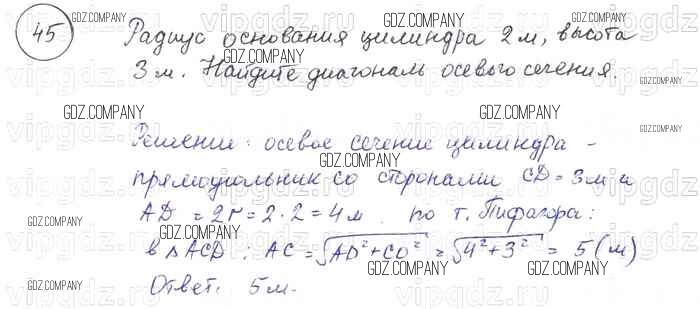 45 Радиус основания цилиндра 2 м, высота
3 м. Найдите диагональ осевого сечения.
Решение: осевое сечение цилиндра -
прямоугольник со сторонами CD = 3 м и
AD = 2r = 2 · 2 = 4 м. по т. Пифагора:
в △ ACD: AC = √AD²+CD² = √4²+3² = 5 (м)
Ответ: 5 м.